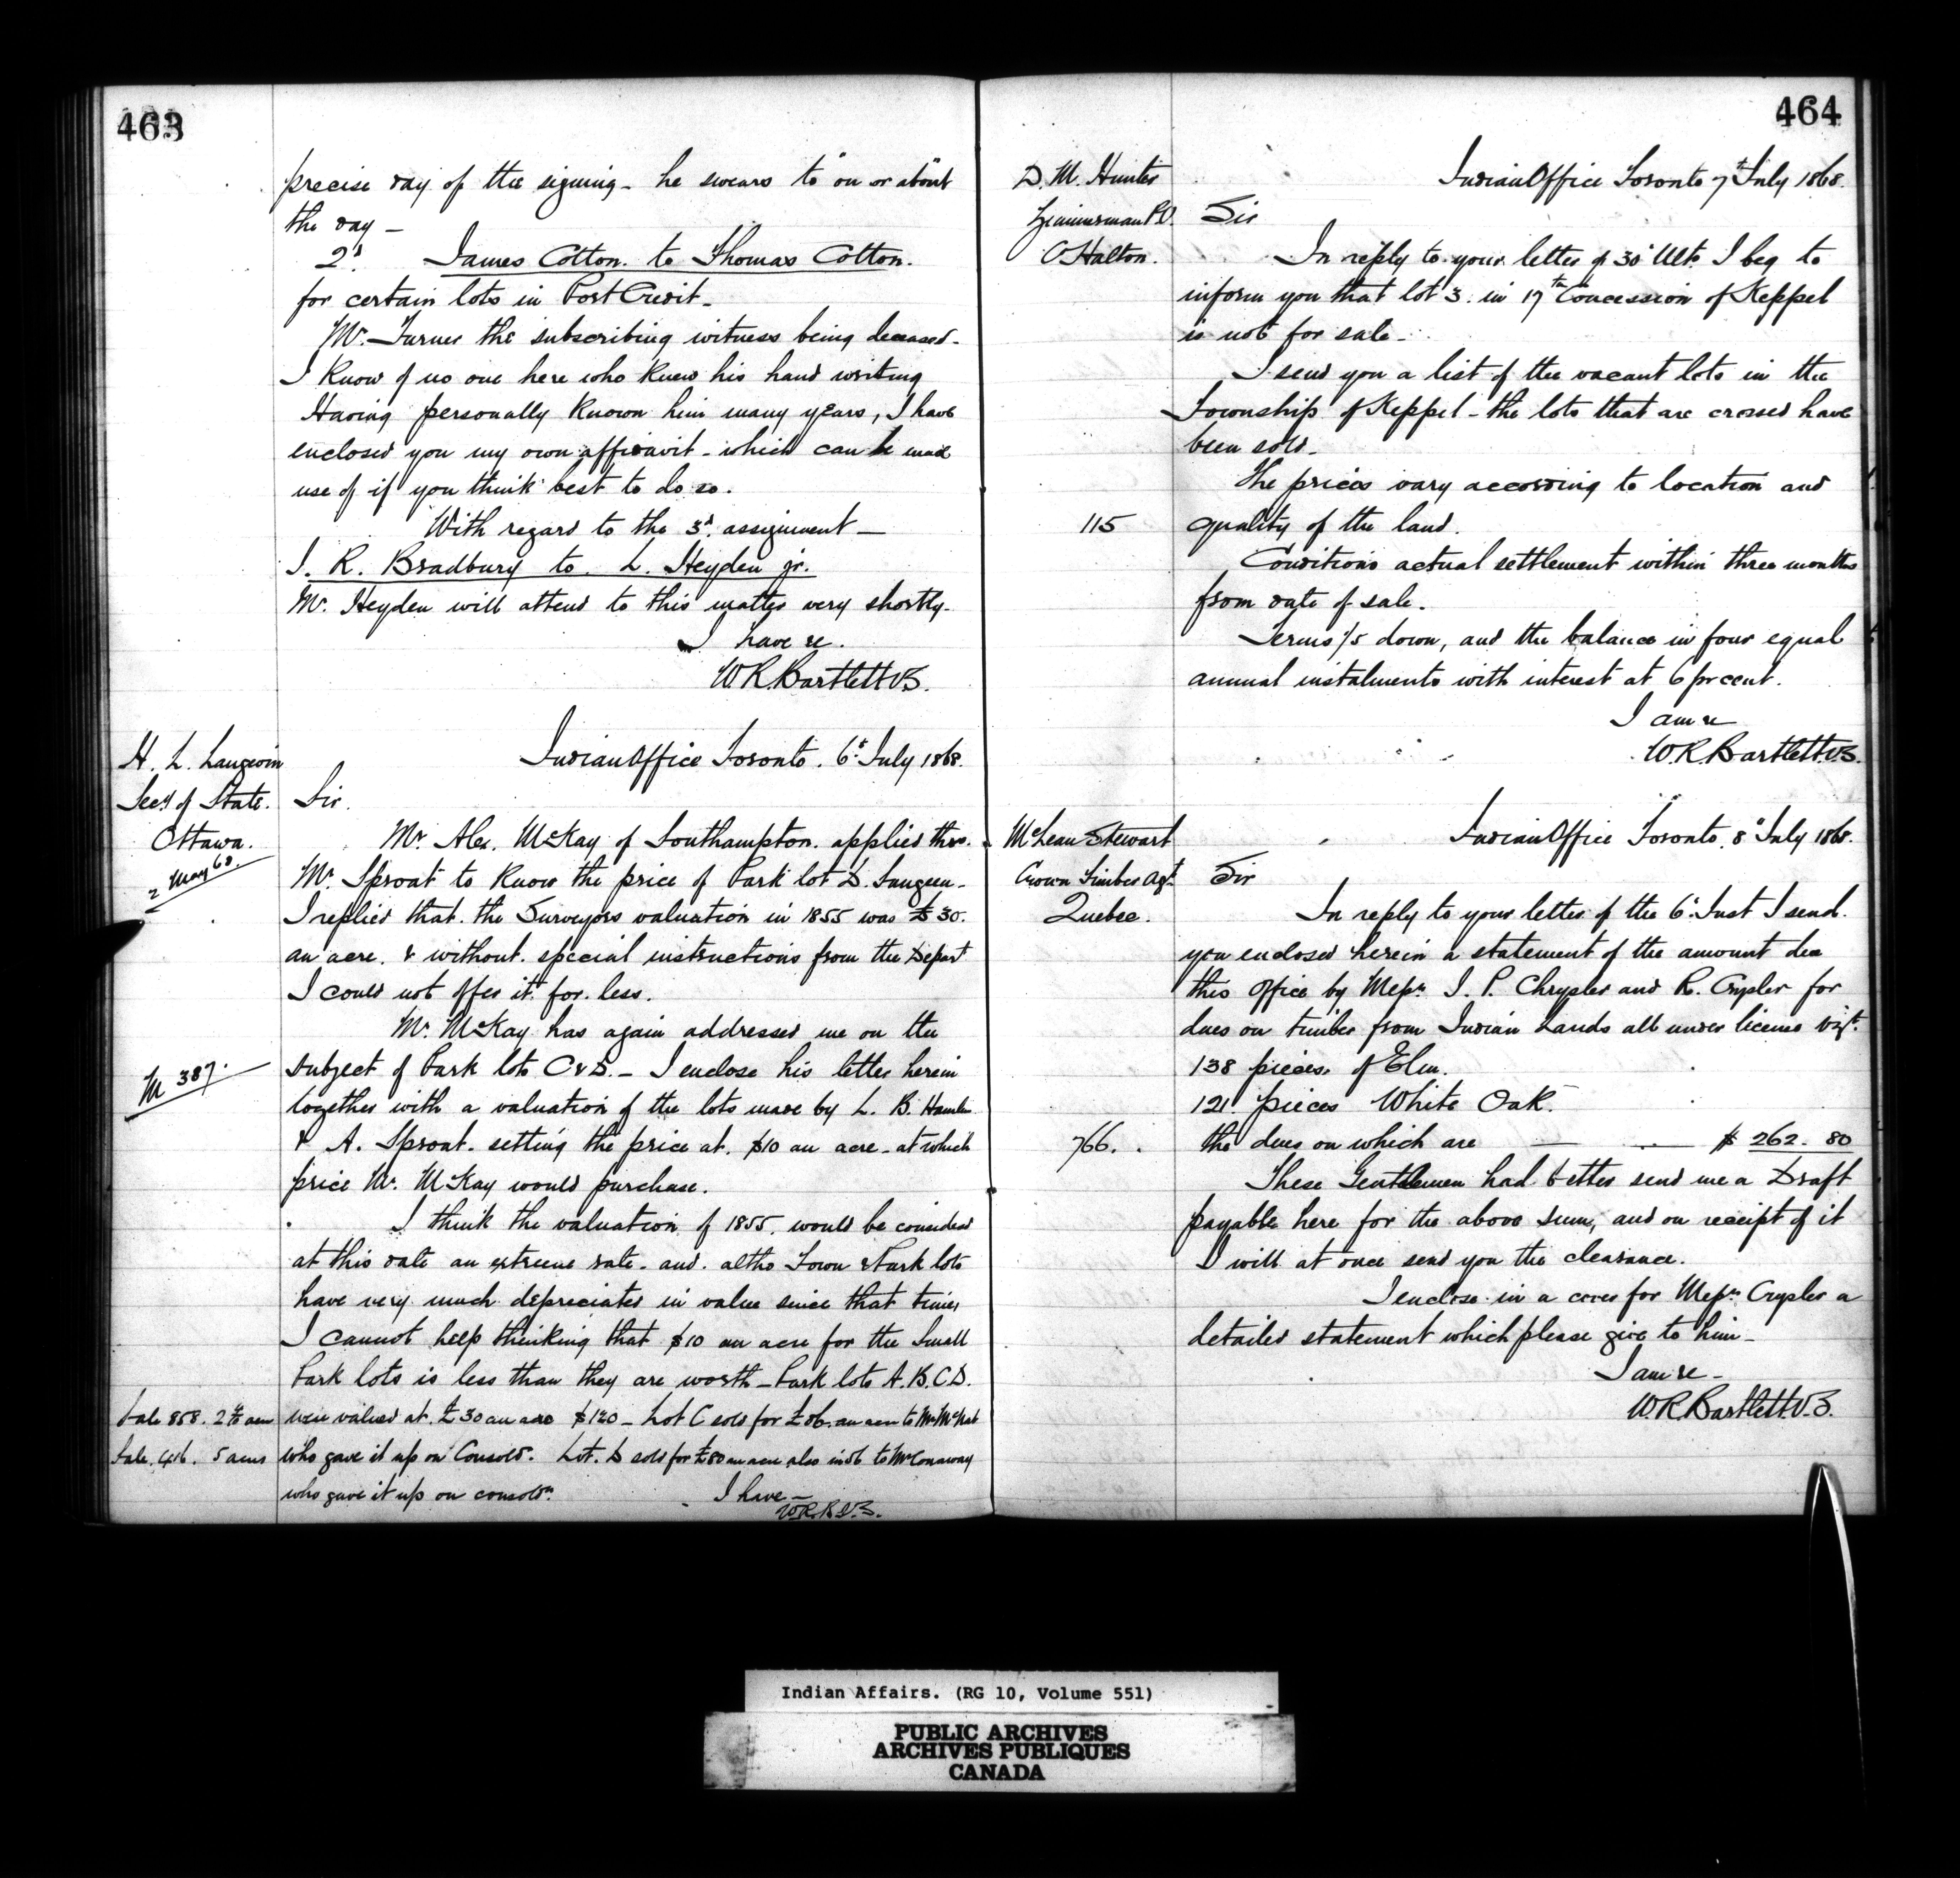 463
precise day of the signing - he swears to "on or about"
the day -
2d. James Cotton. to Thomas Cotton.
for certain lots in Port Credit -
Mr. Turner the subscribing witness being deceased -
I know of no one here who knew his hand writing
Having personally known him many years, I have
enclosed you my own affidavit - which can be made
use of if you think best to do so.
With regard to the 3d. assignment -
J. R. Bradbury to. L. Heyden jr.
Mr. Heyden will attend to this matter very shortly.
I have &c.
W R. Bartlett V.S.
H. L. Langevin
Secy of State.
Ottawa.
2 May 68.
Indian Office Toronto. 6th July 1868.
Sir.
Mr. Alex. McKay of Southampton. applied thro.
Mr. Sproat to know the price of Park lot D. Saugeen -
I replied that. the Surveyors valuation in 1855 was £30.
an acre. & without. special instructions from the Depart
I could not offer it. for. less.
Mr. McKay has again addressed me on the
M 387.
subject of Park lots C & D. - I enclose his letter herein
together with a valuation of the lots made by L. B. Hamlin
& A. Sproat. setting the price at. $10 an acre - at which
price Mr. McKay would purchase.
I think the valuation of 1855. would be considered
at this date an extreme rate. and. altho Town & Park lots
have very much depreciated in value since that time,
I cannot help thinking that $10 an acre for the small
Park lots is less than they are worth - Park lots A. B. C. D.
Sale 858. acres were valued at. £30 an acre $120 - Lot C sold for an acre to Mr McNab
Sale. 416. 5 acres who gave it up on Consoldn. Lot. D sold for £80 an acre also in 56 to Mr Conaway
who gave it up on consoldn.
I have -
W.R.B V.S.
464
D. M. Hunter
Zimmerman P.O.
C Halton.
Indian Office Toronto 7th July 1868.
Sir
In reply to your letter of 30th Ulto. I beg to
inform you that lot 3. in 17th Concession of Keppel
is not for sale -
I send you a list of the vacant lots in the
Township of Keppel - the lots that are crossed have
been sold -
The prices vary according to location and
115
quality of the land.
Conditions actual settlement within three months
from date of sale.
Terms 1/5 down, and the balance in four equal
annual instalments with interest at 6 pr cent.
I am &c
W.R. Bartlett. V.S.
McLean Stewart
Crown Timber Agt.
Quebec.
Indian Office Toronto, 8th July 1868.
Sir
In reply to your letter of the 6th. Inst I send.
you enclosed herein a statement of the amount due
this office by Messrs. J. P. Chrysler and R. Crysler for
dues on timber from Indian Lands all under license vizt.
138 pieces, of Elm.
121. pieces White Oak.
766.
the dues on which are — $ 262. 80
These Gentlemen had better send me a Draft
payable here for the above sum, and on receipt of it
I will at once send you the clearance.
I enclose in a cover for Messrs Crysler a
detailed statement which please give to him -
I am &c -
W. R. Bartlett. V.S.
Indian Affairs. (RG 10, Volume 551)
PUBLIC ARCHIVES
ARCHIVES PUBLIQUES
CANADA